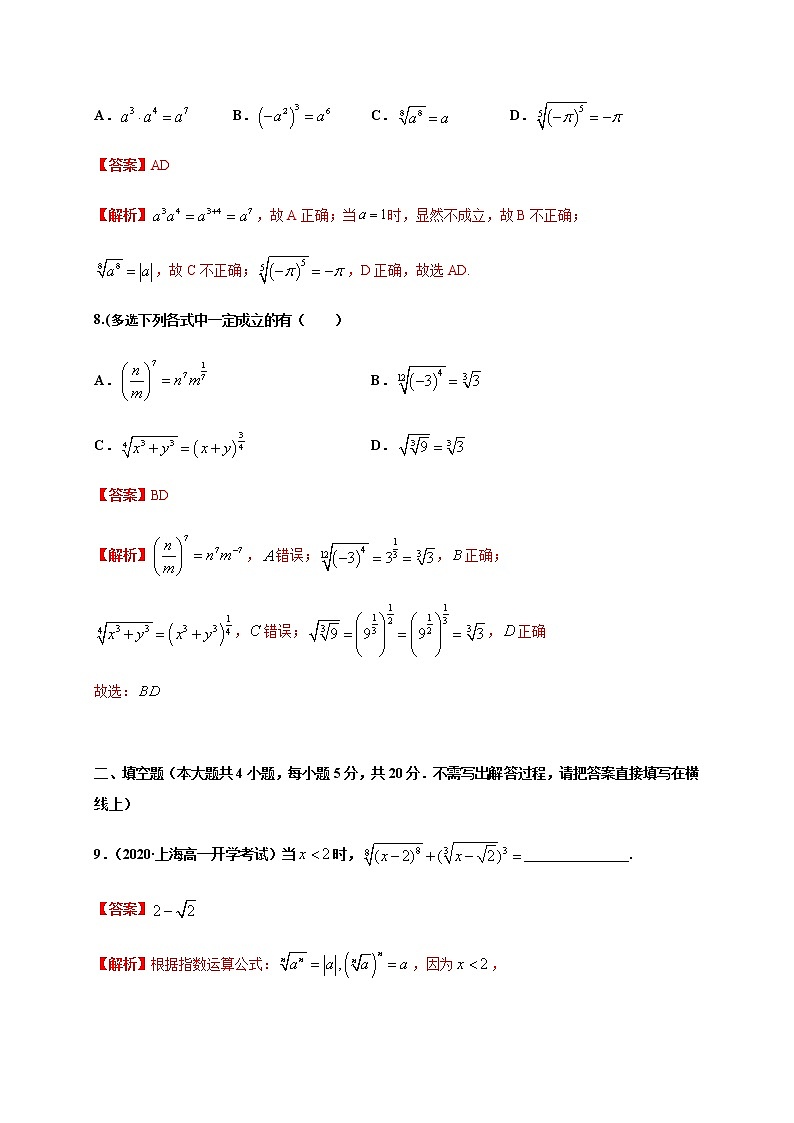 A．a³·a⁴=a⁷ B．(−a²)³=a⁶ C．⁸√(a⁸)=a D．⁵√((−π)⁵)=−π
【答案】AD
【解析】a³a⁴=a³⁺⁴=a⁷，故A正确；当a=1时，显然不成立，故B不正确；
⁸√(a⁸)=|a|，故C不正确；⁵√((−π)⁵)=−π，D正确，故选AD.
8.(多选下列各式中一定成立的有（　　）
A．(n/m)⁷=n⁷m^(1/7) B．¹²√((−3)⁴)=³√3
C．⁴√(x³+y³)=(x+y)^(3/4) D．√(³√9)=³√3
【答案】BD
【解析】(n/m)⁷=n⁷m⁻⁷，A错误；¹²√((−3)⁴)=3^(1/3)=³√3，B正确；
⁴√(x³+y³)=(x³+y³)^(1/4)，C错误；√(³√9)=(9^(1/3))^(1/2)=(9^(1/2))^(1/3)=³√3，D正确
故选：BD
二、填空题（本大题共4小题，每小题5分，共20分．不需写出解答过程，请把答案直接填写在横
线上）
9．（2020·上海高一开学考试）当x<2时，⁸√((x−2)⁸)+(³√(x−√2))³=_______________．
【答案】2−√2
【解析】根据指数运算公式：ⁿ√(aⁿ)=|a|,(ⁿ√a)ⁿ=a，因为x<2，